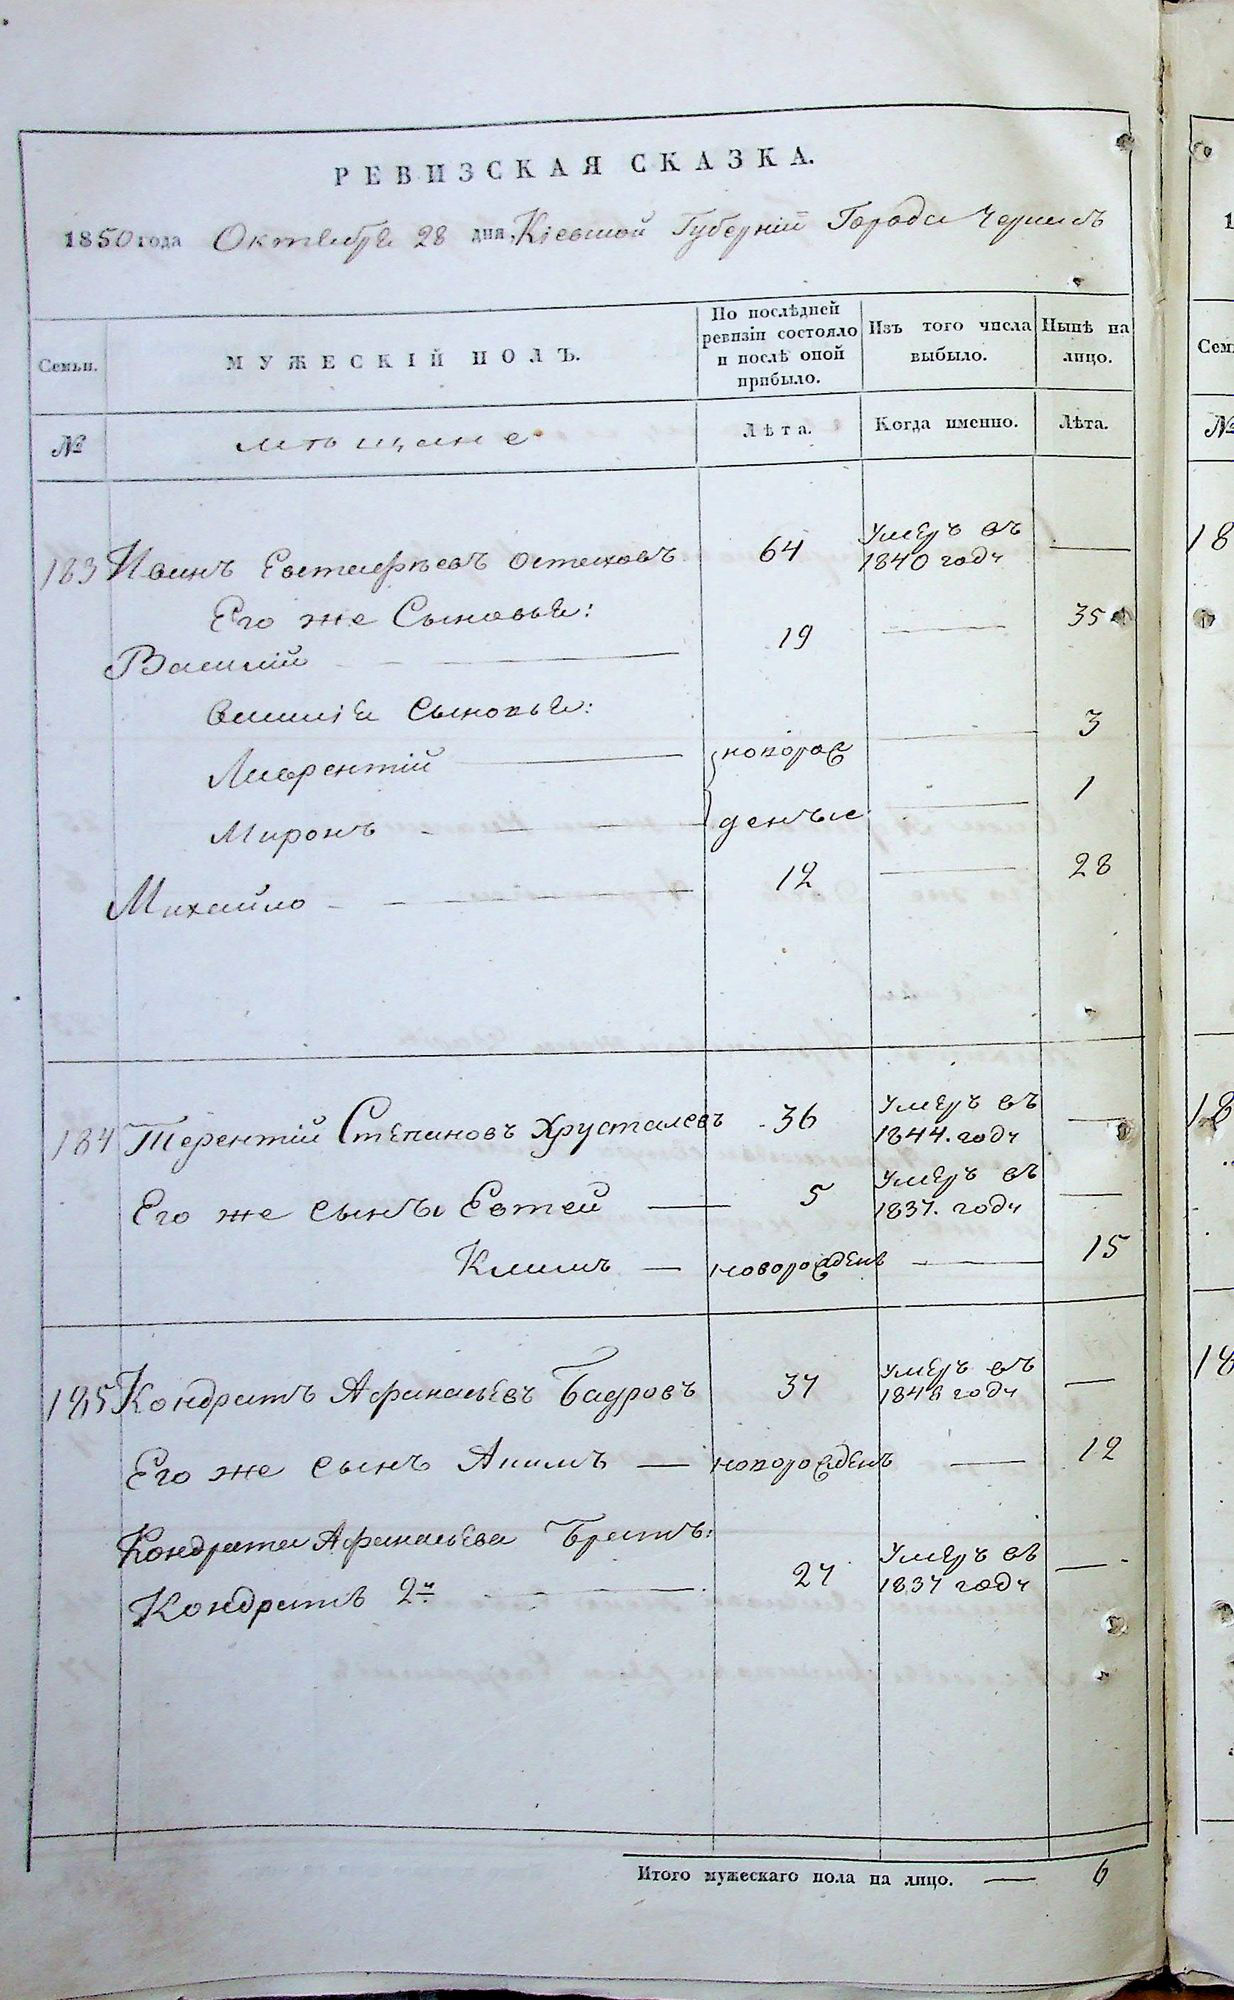 РЕВИЗСКАЯ СКАЗКА.
1850 года Октября 28 дня, Кіевской Губерніи Города
Семьи.
МУЖЕСКІЙ ПОЛЪ.
По послѣдней ревизіи состояло и послѣ оной прибыло.
Изъ того числа выбыло.
Нынѣ на лицо.
№
мѣщане
Лѣта.
Когда именно.
Лѣта.
183 Иванъ Евстафьевъ 64 Умеръ въ 1840 году —
Его же Сыновья:
Василій — 19 — 35
Василія Сыновья:
Лаврентій — новорож — 3
Миронъ — денные — 1
Михайло — 12 — 28
184 Терентій Степановъ Хрусталевъ 36 Умеръ въ 1844. году —
Его же сынъ Евтей — 5 Умеръ въ 1837. году —
Климъ — новорожденъ — 15
185 Кондратъ Афанасьевъ 37 Умеръ въ 1848 году —
Его же сынъ Акимъ — новорожденъ — 12
Кондрата Афанасьева Братъ:
Кондратъ 2й — 27 Умеръ въ 1837 году —
Итого мужескаго пола на лицо. — 6
№